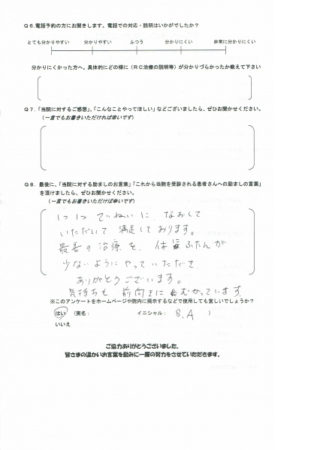 Q6.電話予約の方にお聞きします。電話での対応・説明はいかがでしたか？
とても分かりやすい　分かりやすい　ふつう　分かりにくい　非常に分かりにくい
分かりにくかった方へ、具体的にどの様に（RC治療の説明等）が分かりづらかったか教えて下さい
Q7.「当院に対するご感想」、「こんなことやってほしい」などございましたら、ぜひお聞かせください。
（一言でもお書きいただければ幸いです）
Q8.最後に、「当院に対する励ましのお言葉」「これから当院を受診される患者さんへの励ましの言葉」
を頂けましたら、ぜひお聞かせください。
（一言でもお書きいただければ幸いです）
1つ1つ ていねいに、なおして
いただいて 満足しております。
最善の治療を、体
ふたんが
少ないようにやっていただき
ありがとうございます。
気持ちも 前向きに むかっています
※このアンケートをホームページや院内に掲示するなどで使用しても宜しいでしょうか？
はい　（実名：　イニシャル：S.A　）
いいえ
ご協力ありがとうございました。
皆さまの温かいお言葉を励みに一層の努力をさせていただきます。